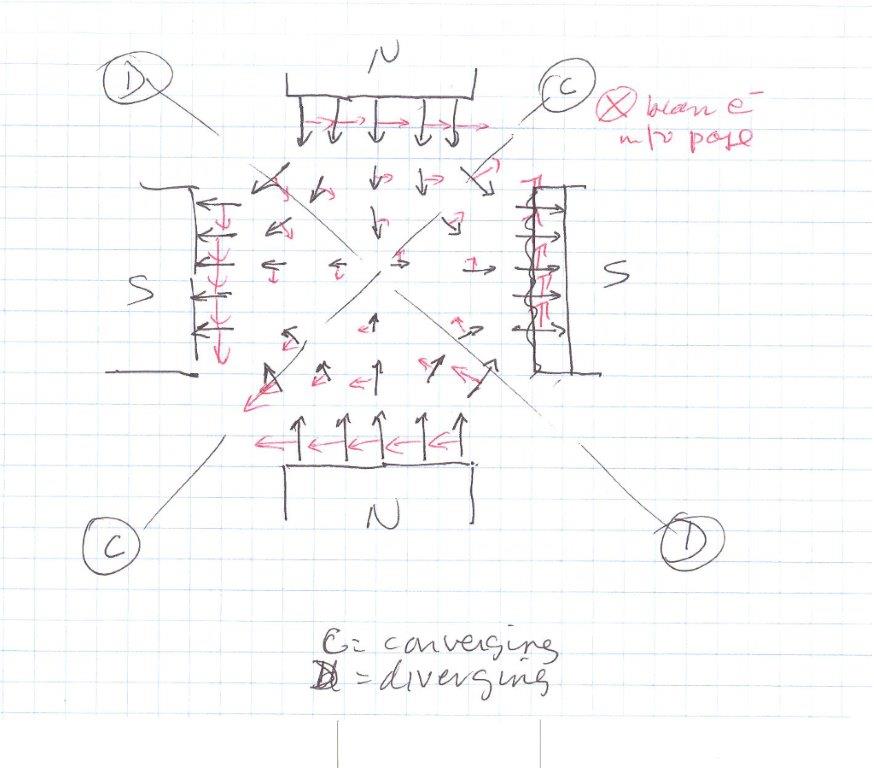 N
D
C
⊗ beam e⁻
into page
S
S
C
N
D
C = converging
D = diverging